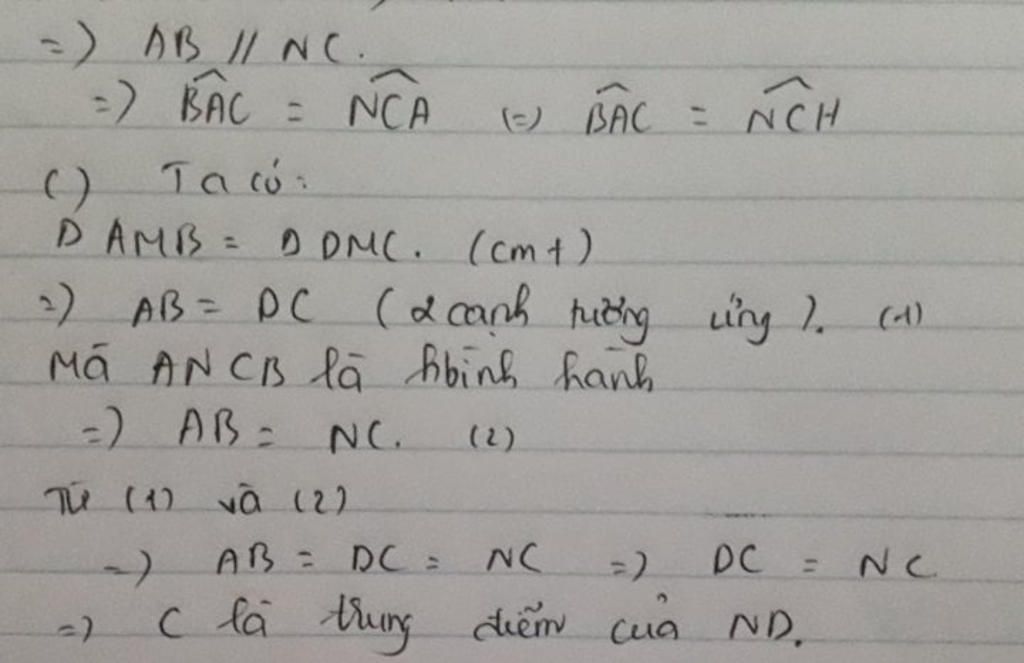 =) AB // NC.
=) \widehat{BAC} = \widehat{NCA} (=) \widehat{BAC} = \widehat{NCH}
c) Ta có:
Δ AMB = Δ DMC. (cmt)
=) AB = DC (2 cạnh tương ứng). (1)
Mà ANCB là hbình hành
=) AB = NC. (2)
Từ (1) và (2)
=) AB = DC = NC =) DC = NC
=) C là trung điểm của ND.